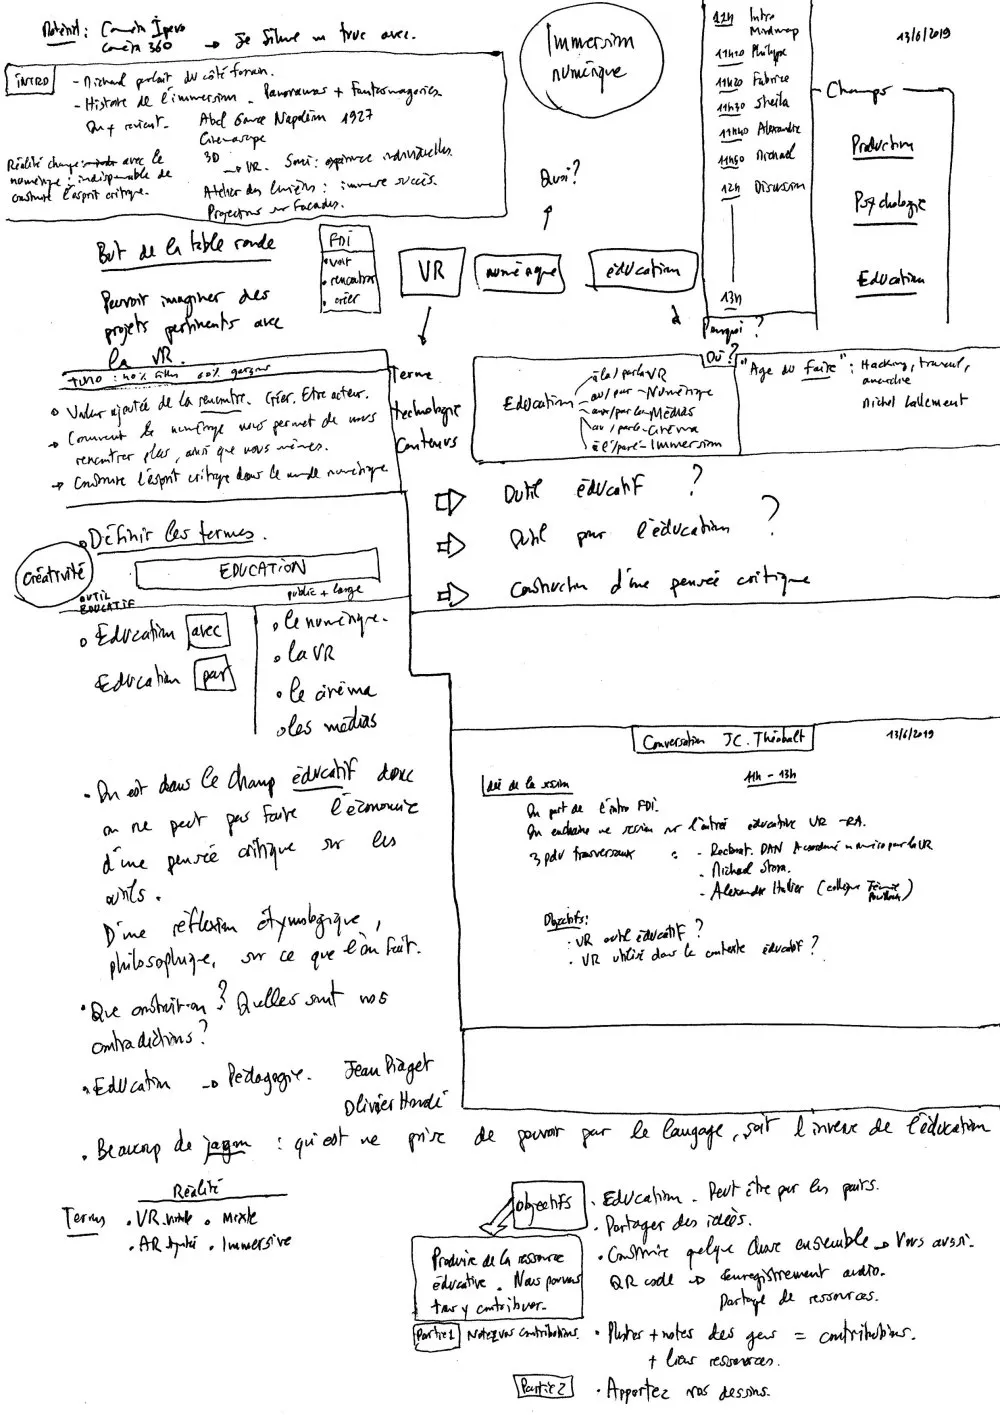 Matériel : Caméra
Caméra 360 → Je filme un truc avec.
Immersion
numérique
11h Intro
Mindmap
11h10 Philippe
11h20 Fabrice
11h30 Sheila
11h40 Alexandre
11h50 Michael
12h Discussion
13h
13/6/2019
Champs
Production
Psychologie
Education
INTRO
- Michael parlait du côté forain.
- Histoire de l'immersion. Panoramas + Fantasmagories
Qu + revient. Abel Gance Napoléon 1927
Cinemascope
3D
→ VR. Souci : expérience individuelles.
Atelier des Lumières : immense succès.
Projections sur Façades.
Réalité change avec le
numérique : indispensable de
construire l'esprit critique.
Quoi?
But de la table ronde
FDI
• voir
• rencontrer
• créer
VR
numérique
éducation
Pouvoir imaginer des
projets pertinents avec
la VR.
Pourquoi ?
Où ?
TUMO : 40% filles 60% garçons
Valeur ajoutée de la rencontre. Créer. Etre acteur.
→ Comment le numérique nous permet de nous
rencontrer plus, ainsi que nous mêmes.
→ Construire l'esprit critique dans le monde numérique
Terme
technologie
Contenus
Education
à la / par la VR
au / par Numérique
aux / par les Médias
au / par le Cinéma
à l' / par l' Immersion
"Age du Faire" : Hacking, travail,
anarchie
Michel Lallement
Outil éducatif ?
Outil pour l'éducation ?
Construction d'une pensée critique
Définir les termes.
Créativité
EDUCATION
OUTIL
EDUCATIF
public + large
Education avec
Education par
• le numérique.
• la VR
• le cinéma
• les médias
Conversation JC. Théobalt
13/6/2019
11h - 13h
Idée de la session
On part de l'intro FDI.
On enchaine une session sur l'intérêt éducative VR - RA.
3 pdv transversaux : - Rectorat. DAN
- Michael Stora.
- Alexandre
Objectifs:
• VR outil éducatif ?
• VR utilisé dans le contexte éducatif ?
• On est dans le champ éducatif donc
on ne peut pas faire l'économie
d'une pensée critique sur les
outils.
D'une réflexion étymologique,
philosophique, sur ce que l'on fait.
• Que construit-on ? Quelles sont nos
contradictions ?
• Education → Pédagogie. Jean Piaget
Olivier Houdé
• Beaucoup de jargon : qui est une prise de pouvoir par le langage, soit l'inverse de l'éducation
Réalité
Terms • VR • Mixte
• AR • Immersive
objectifs
• Education. Peut être par les pairs.
• Partager des idées.
• Construire quelque chose ensemble → Vous aussi.
QR code → Enregistrement audio.
Partage de ressources.
Produire de la ressource
éducative. Nous pouvons
tous y contribuer.
Partie 1 Notez vos contributions.
• Photos + notes des gens = contributions.
+ liens ressources.
Partie 2
• Apportez vos dessins.